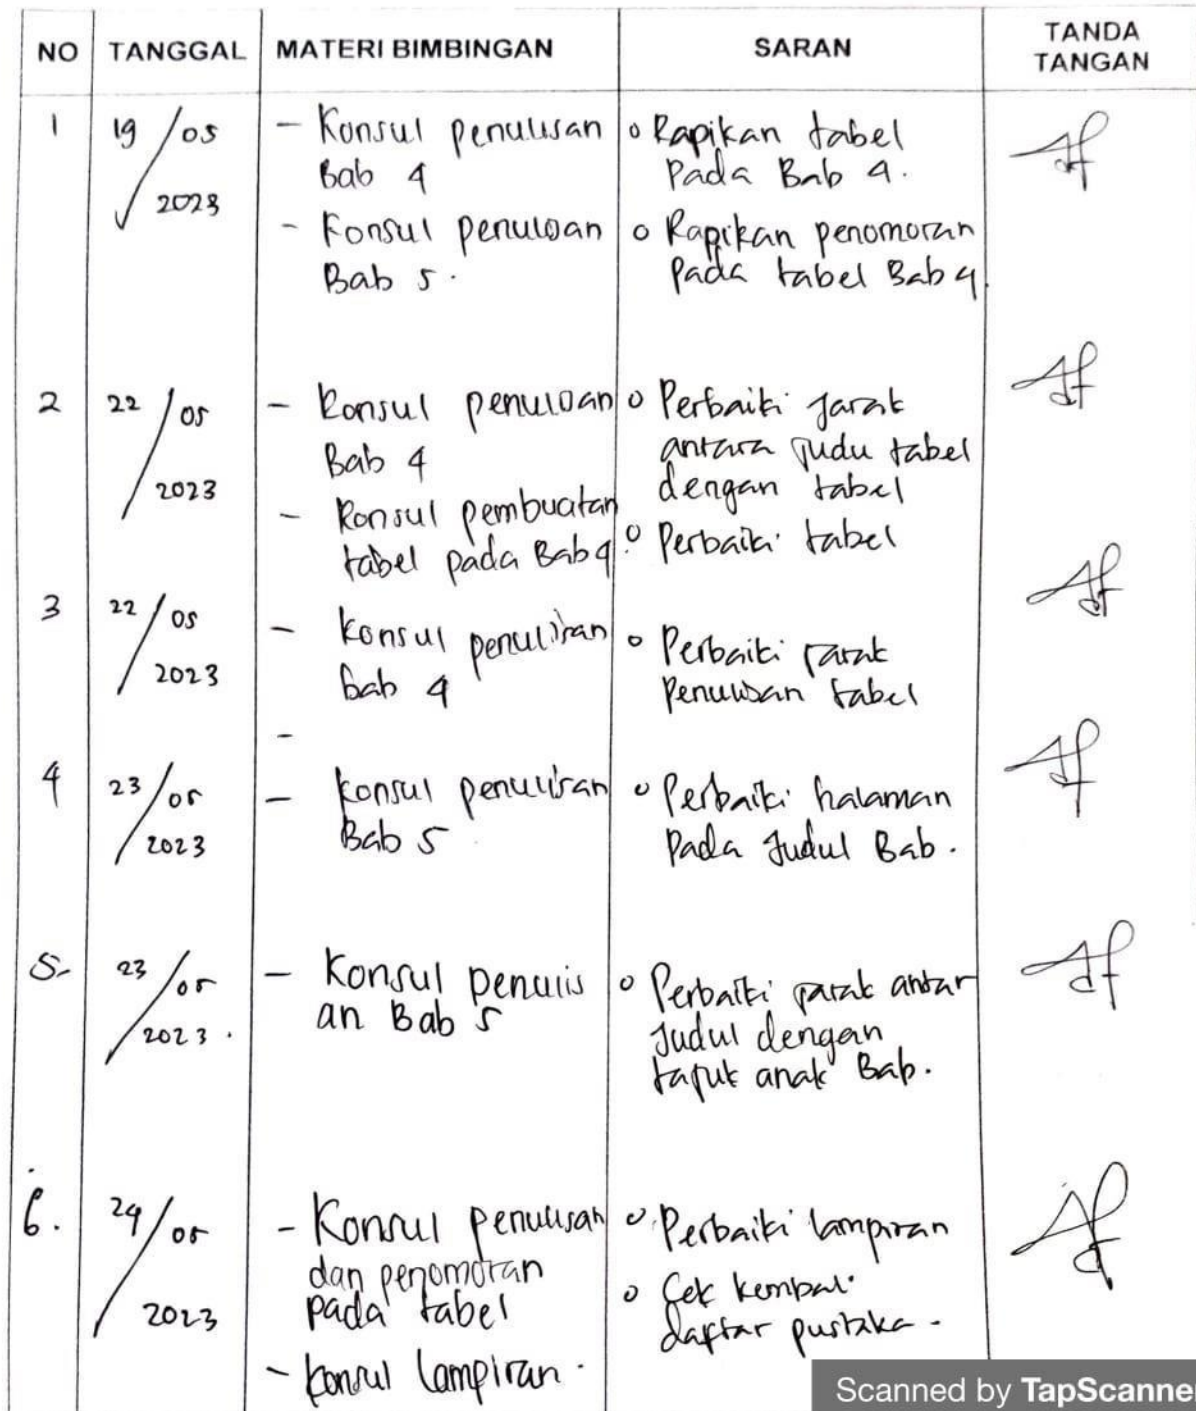 NO TANGGAL MATERI BIMBINGAN SARAN TANDA TANGAN
1 19/05 2023
- Konsul penulisan
Bab 4
- Konsul penulisan
Bab 5.
o Rapikan tabel
Pada Bab 4.
o Rapikan penomoran
Pada tabel Bab 4.
2 22/05 2023
- Konsul penulisan
Bab 4
- Konsul pembuatan
tabel pada Bab 4.
o Perbaiki Jarak
antara Judu tabel
dengan tabel
o Perbaiki tabel
3 22/05 2023
- Konsul penulisan
bab 4
-
o Perbaiki Jarak
Penulisan tabel
4 23/05 2023
- Konsul penulisan
Bab 5
o Perbaiki halaman
Pada Judul Bab.
5. 23/05 2023.
- Konsul penulis
an Bab 5
o Perbaiki Jarak antar
Judul dengan
anak Bab.
6. 24/05 2023
- Konsul penulisan
dan penomoran
pada tabel
- Konsul lampiran.
o Perbaiki lampiran
o Cek kembali
daftar pustaka.
Scanned by TapScanne